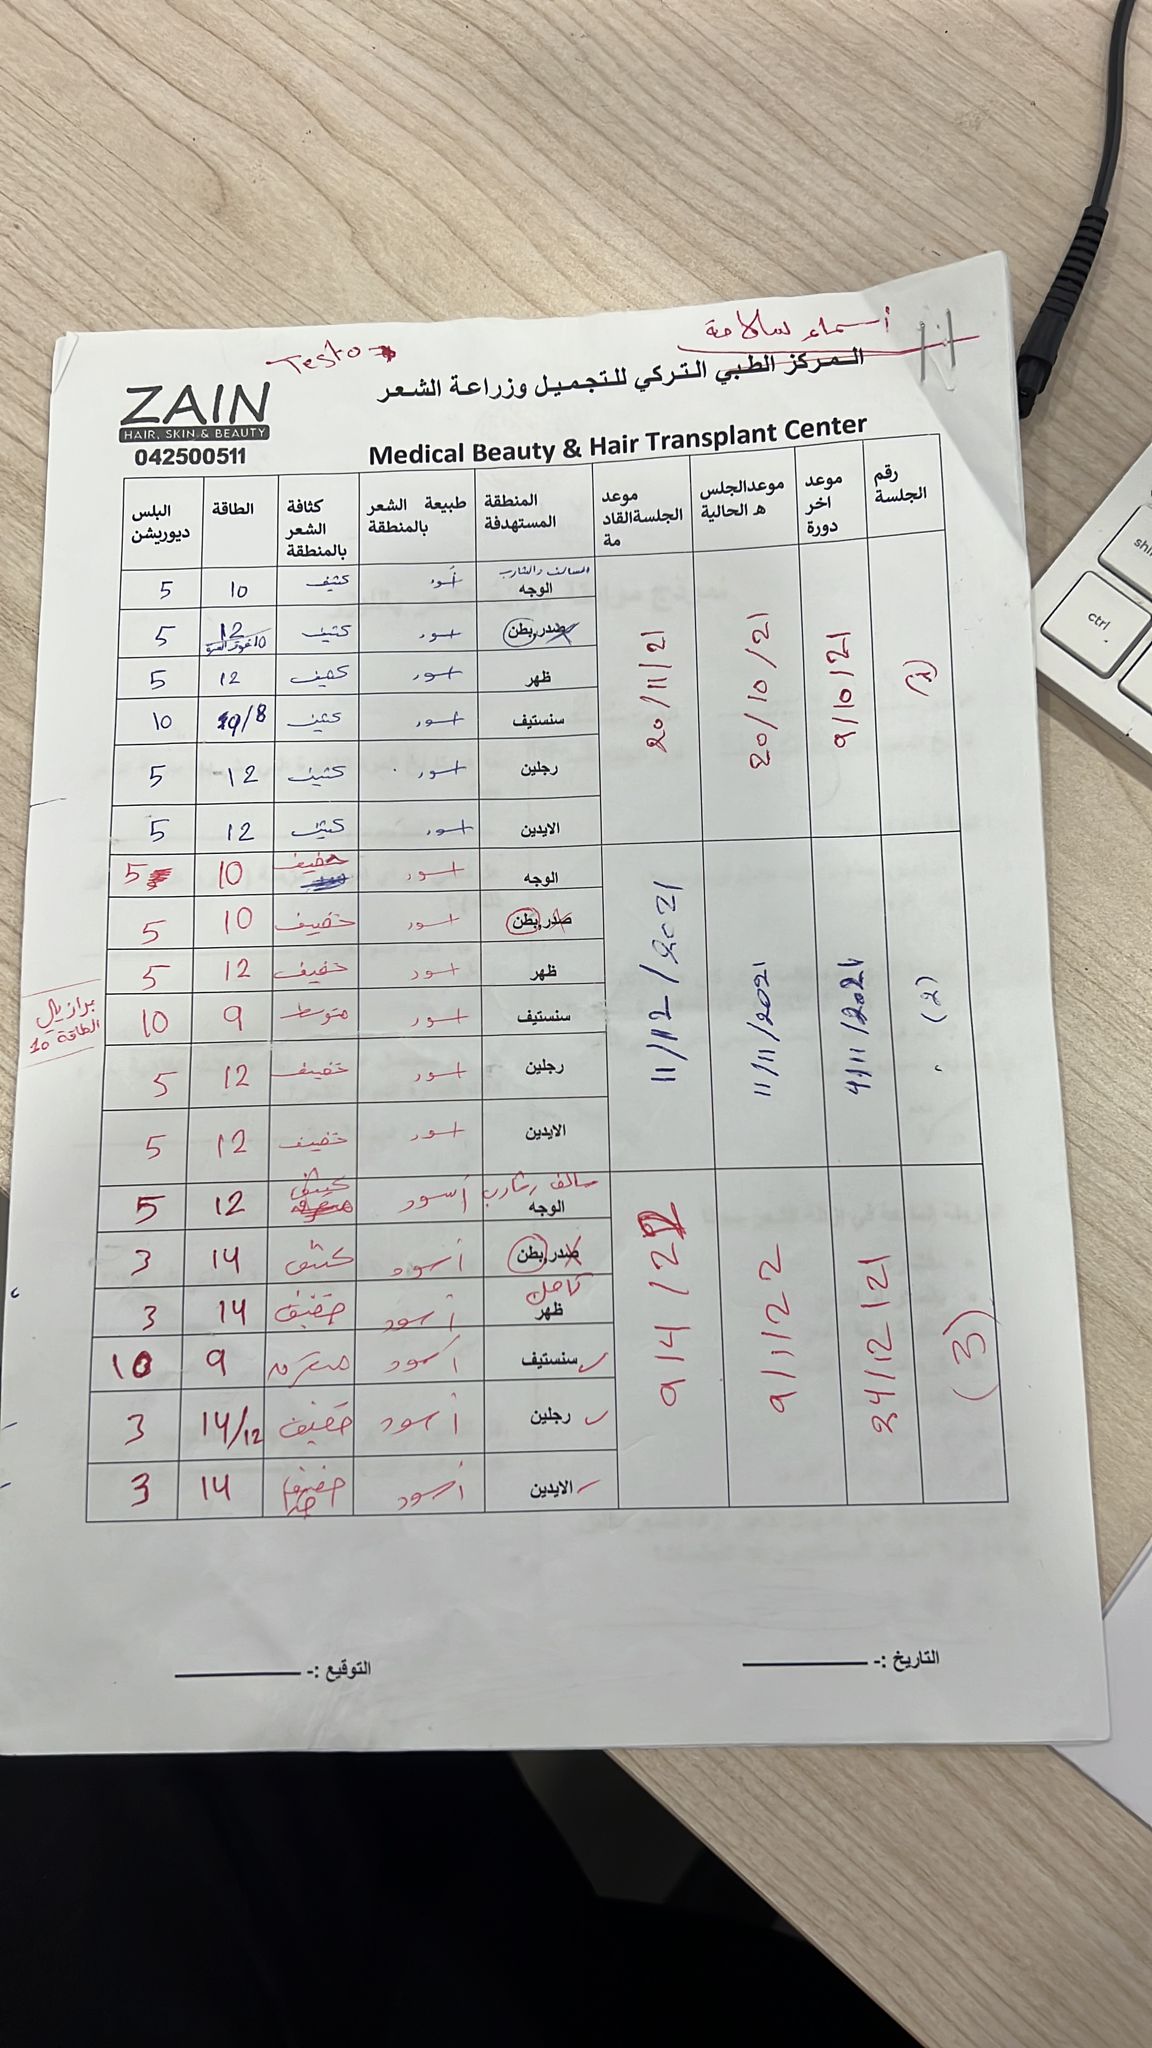 Testo
أسماء سلامة
المركز الطبي التركي للتجميل وزراعة الشعر
ZAIN
HAIR, SKIN & BEAUTY
042500511
Medical Beauty & Hair Transplant Center
رقم الجلسة | موعد اخر دورة | موعدالجلس ه الحالية | موعد الجلسةالقاد مة | المنطقة المستهدفة | طبيعة الشعر بالمنطقة | كثافة الشعر بالمنطقة | الطاقة | البلس ديوريشن
(1) | 9/10/21 | 20/10/21 | 20/11/21
السالف والشارب الوجه | أسود | كثيف | 10 | 5
صدر,بطن | اسود | كثيف | 12 | 5
ظهر | اسود | كثيف | 12 | 5
سنستيف | اسود | كثيف | 8/ | 10
رجلين | اسود | كثيف | 12 | 5
الايدين | اسود | كثيف | 12 | 5
(2) | 4/11/2021 | 11/11/2021 | 11/12/2021
الوجه | اسود | خفيف | 10 | 5
صدر,بطن | اسود | خفيف | 10 | 5
ظهر | اسود | خفيف | 12 | 5
سنستيف | اسود | متوسط | 9 | 10
برازيال
الطاقة 10
رجلين | اسود | خفيف | 12 | 5
الايدين | اسود | خفيف | 12 | 5
(3) | 24/12/21 | 9/1/22 | 9/4/22
سالف وشارب الوجه | أسود | كثيف | 12 | 5
صدر,بطن | أسود | كثيف | 14 | 3
كامل ظهر | أسود | خفيف | 14 | 3
سنستيف | أسود | 9 | 10
رجلين | أسود | خفيف | 14/12 | 3
الايدين | أسود | خفيف جدا | 14 | 3
التاريخ :- التوقيع :-
shi
ctrl